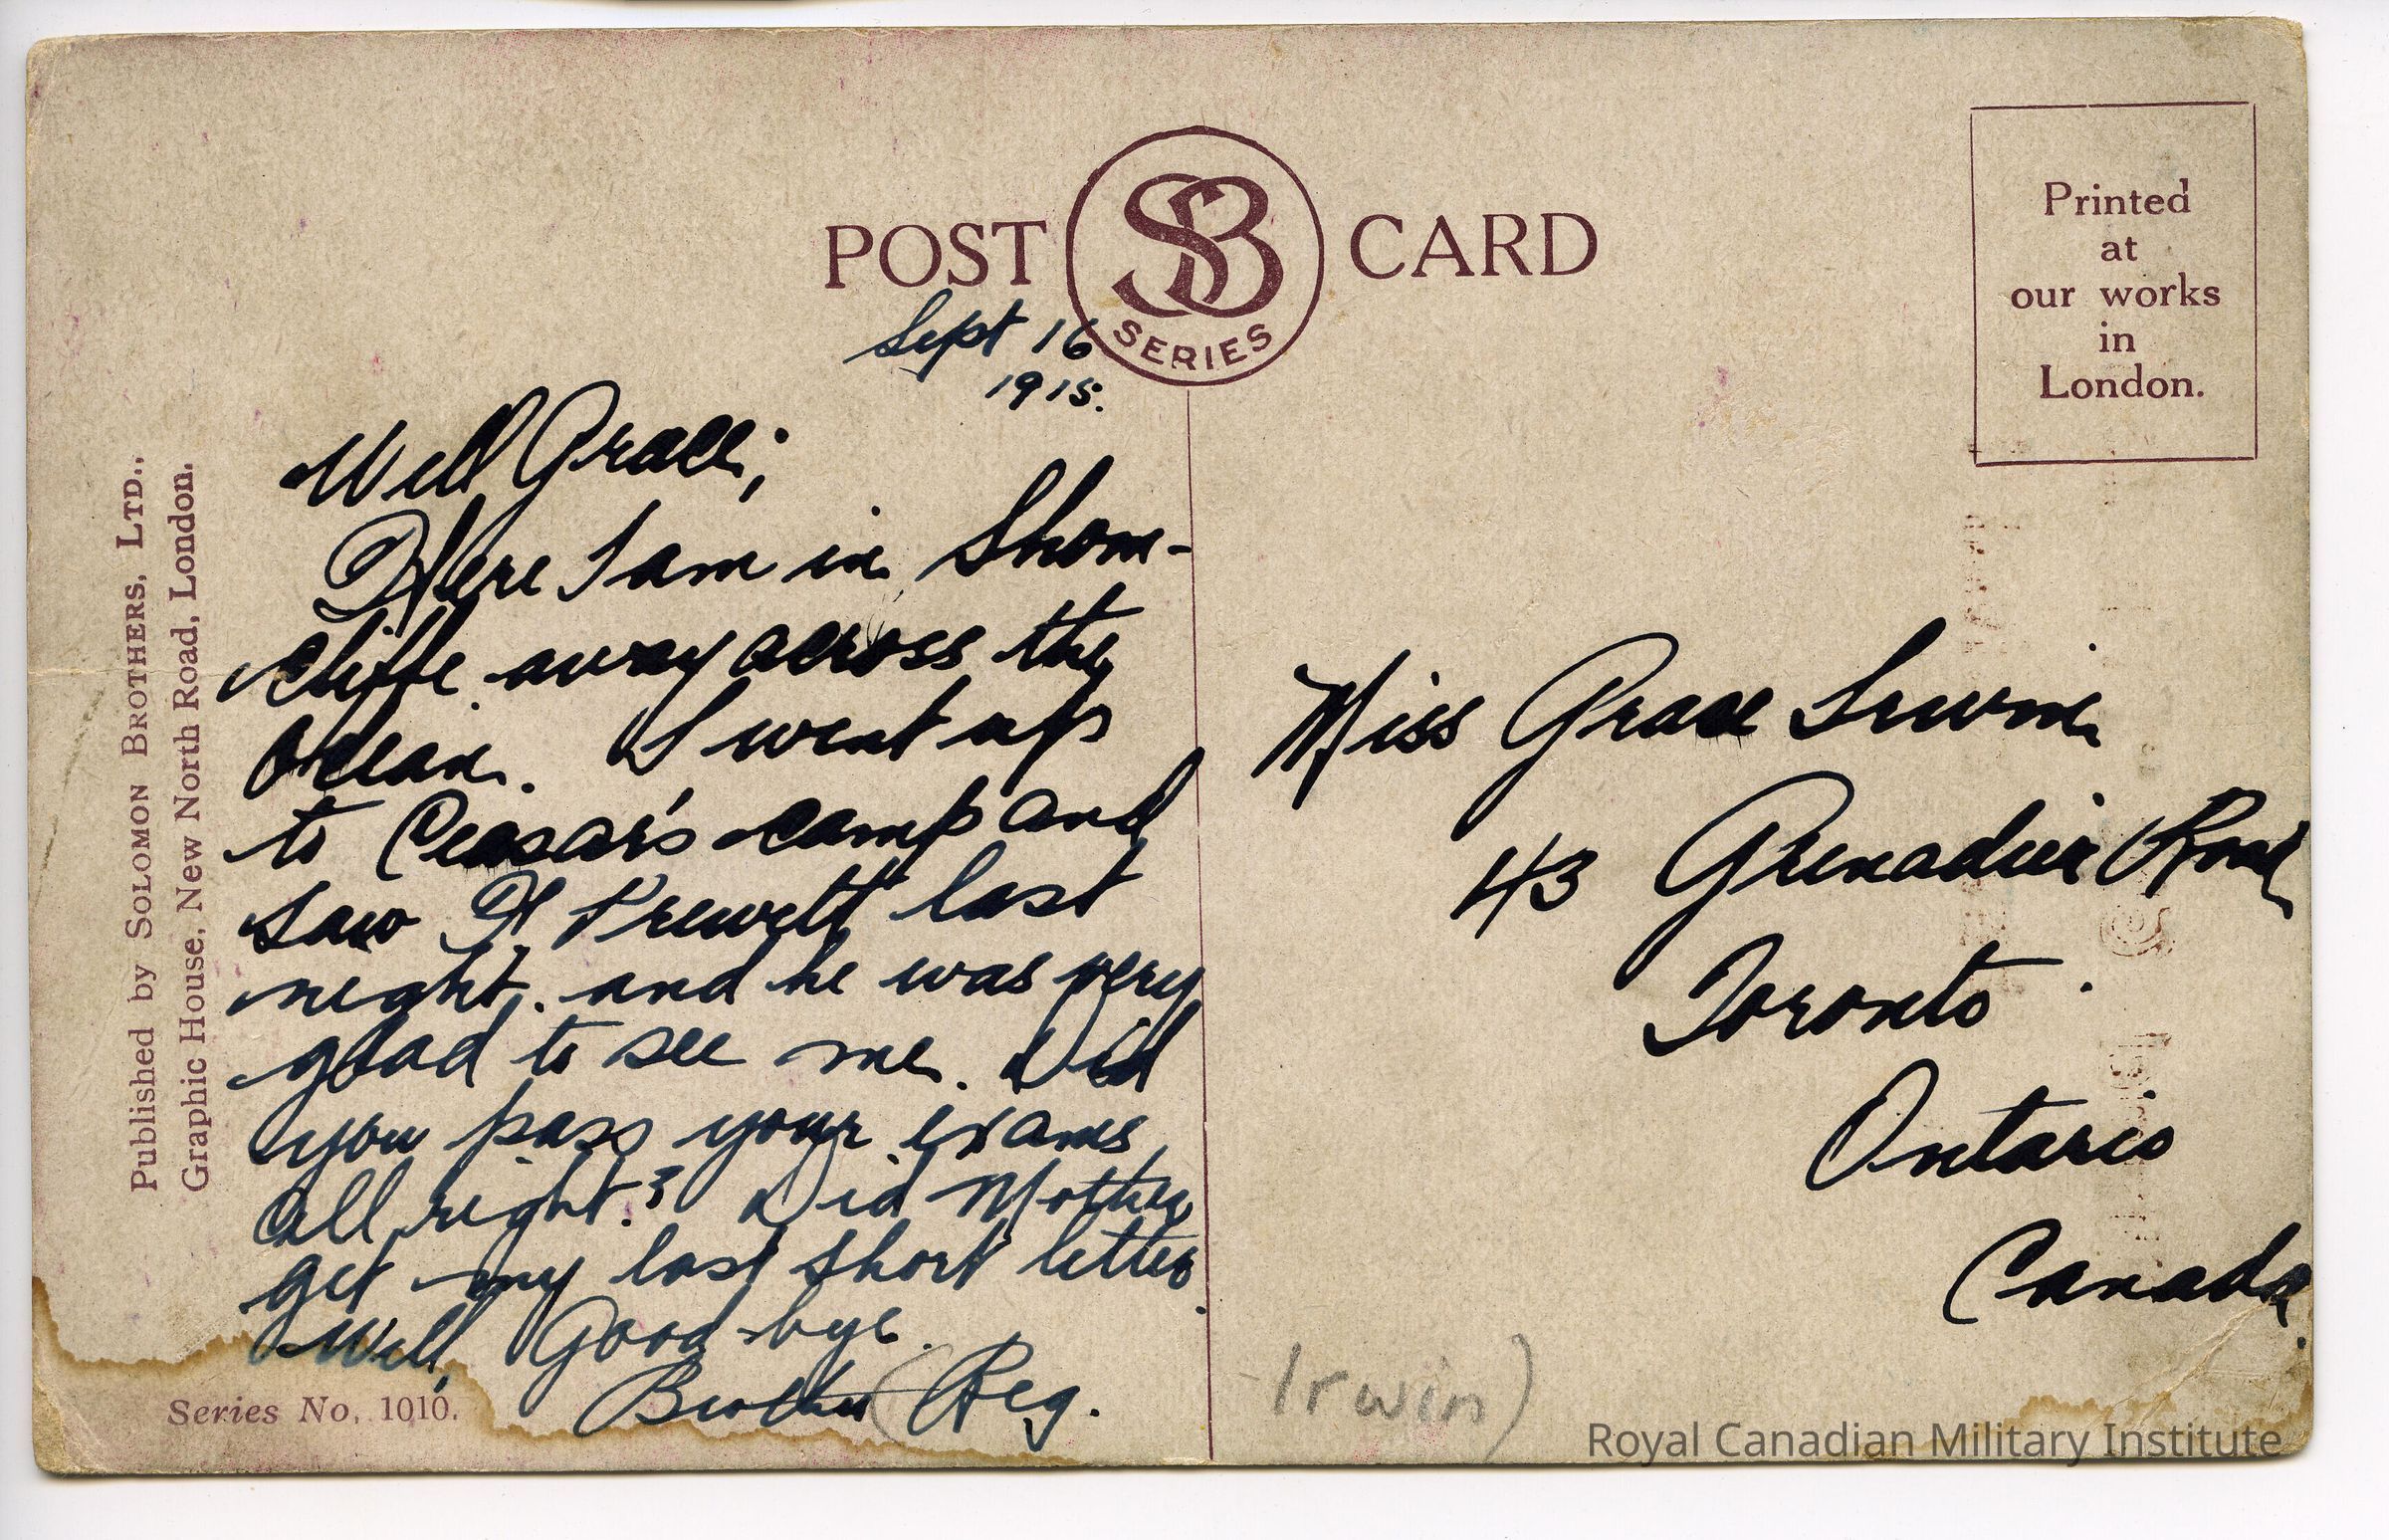 POST CARD
SB
SERIES
Printed
at
our works
in
London.
Published by SOLOMON BROTHERS, LTD.,
Graphic House, New North Road, London.
Sept 16
1915.
Well Grace;
Here I am in Shorn-
cliffe away across the
Ocean. I went up
to Ceasar's camp and
saw H. Prewett last
night. and he was very
glad to see me. Did
you pass your exams
all right? Did Mother
get my last short letter.
Well, Good-bye.
Brother (Reg.
Miss Grace Irwin
43 Grenadier Road
Toronto.
Ontario
Canada.
Irwin)
Series No. 1010.
Royal Canadian Military Institute